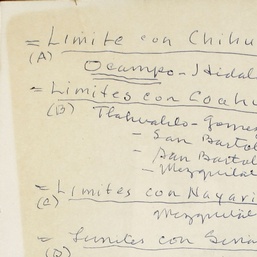 = Limite con Chihu
(A)
Ocampo - Hidal
= Limites con Coahu
(B) Tlahualilo - Gomez
- San Bartol
- San Bartol
- Mezquital
= Limites con Nayari
(C) Mezquital
= Limites con Sina
(D)